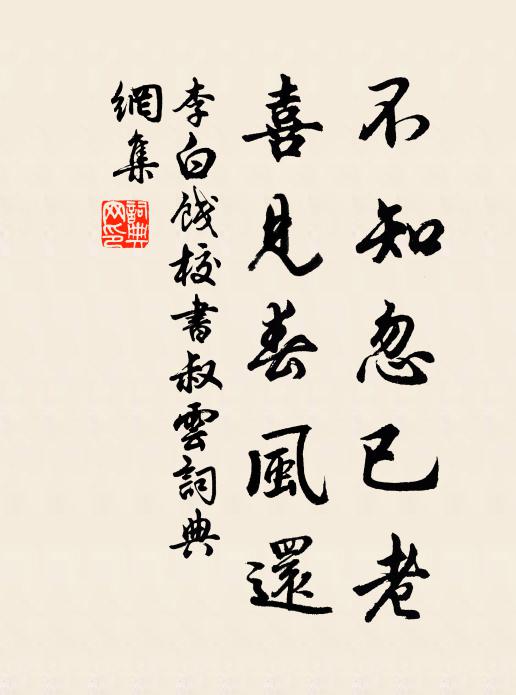 不知忽已老
喜見春風還
李白餞校書叔雲詞典
網集
詞典網印